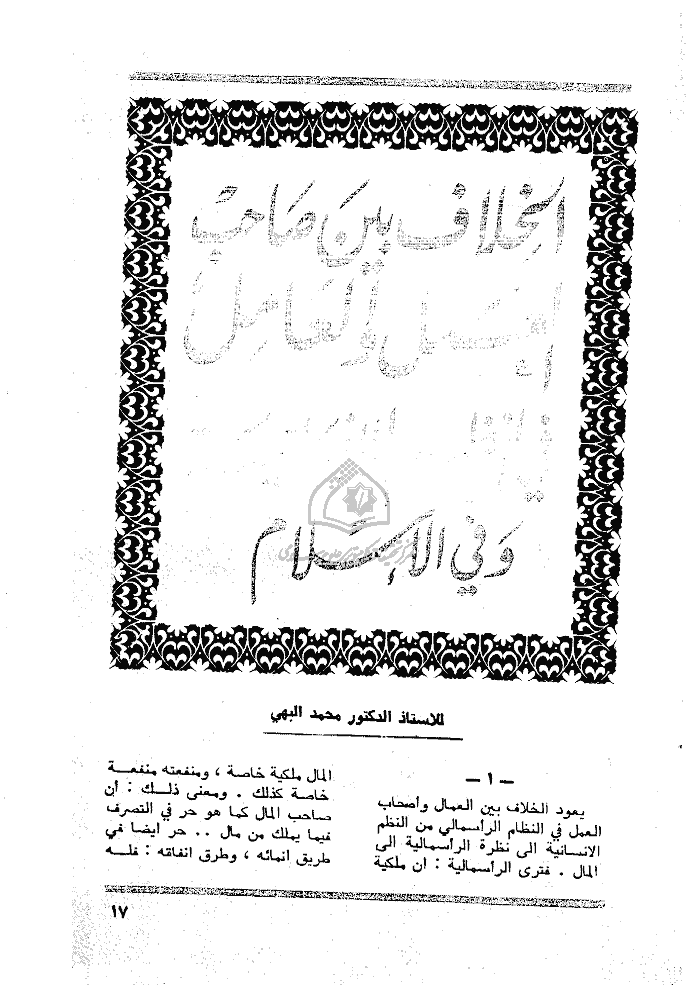 الخلاف بين صاحب
العمل والعامل
وفي الإسلام
للاستاذ الدكتور محمد البهي
— ١ —
يعود الخلاف بين العمال وأصحاب
العمل في النظام الرأسمالي من النظم
الانسانية الى نظرة الرأسمالية الى
المال . فترى الرأسمالية : ان ملكية
المال ملكية خاصة ، ومنفعته منفعة
خاصة كذلك . ومعنى ذلك : أن
صاحب المال كما هو حر في التصرف
فيما يملك من مال .. حر ايضا في
طريق انمائه ، وطرق انفاقه : فله
١٧